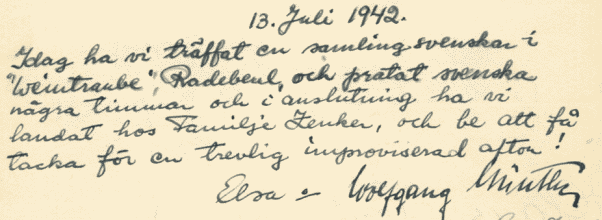 13. Juli 1942.
Idag ha vi träffat en samling svenskar i
"Weintraube", Radebeul, och pratat svenska
några timmar och i anslutning ha vi
landat hos Familje Zenker, och be att få
tacka för en trevlig improviserad afton!
Elsa o Wolfgang Günther